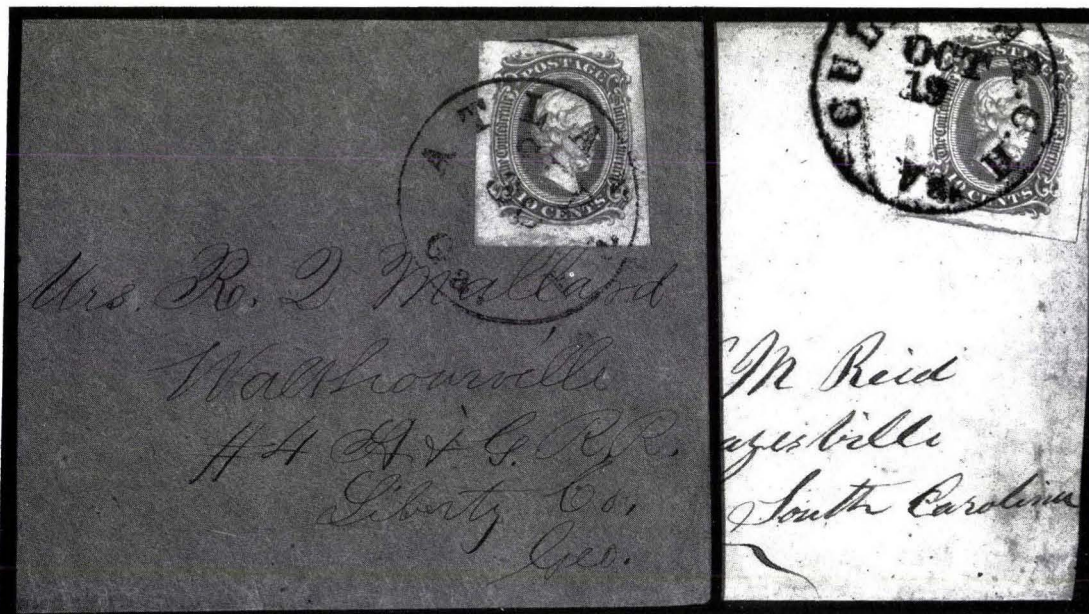 POSTAGE
10 CENTS
ATLA
Ga.
Mrs. R. Q Mallard
Walthourville
#4 A & G. R.R.
Liberty Co,
Geo.
CUL
C.H
Va
OCT
19
POSTAGE
10 CENTS
M Reid
azesville
South Carolina